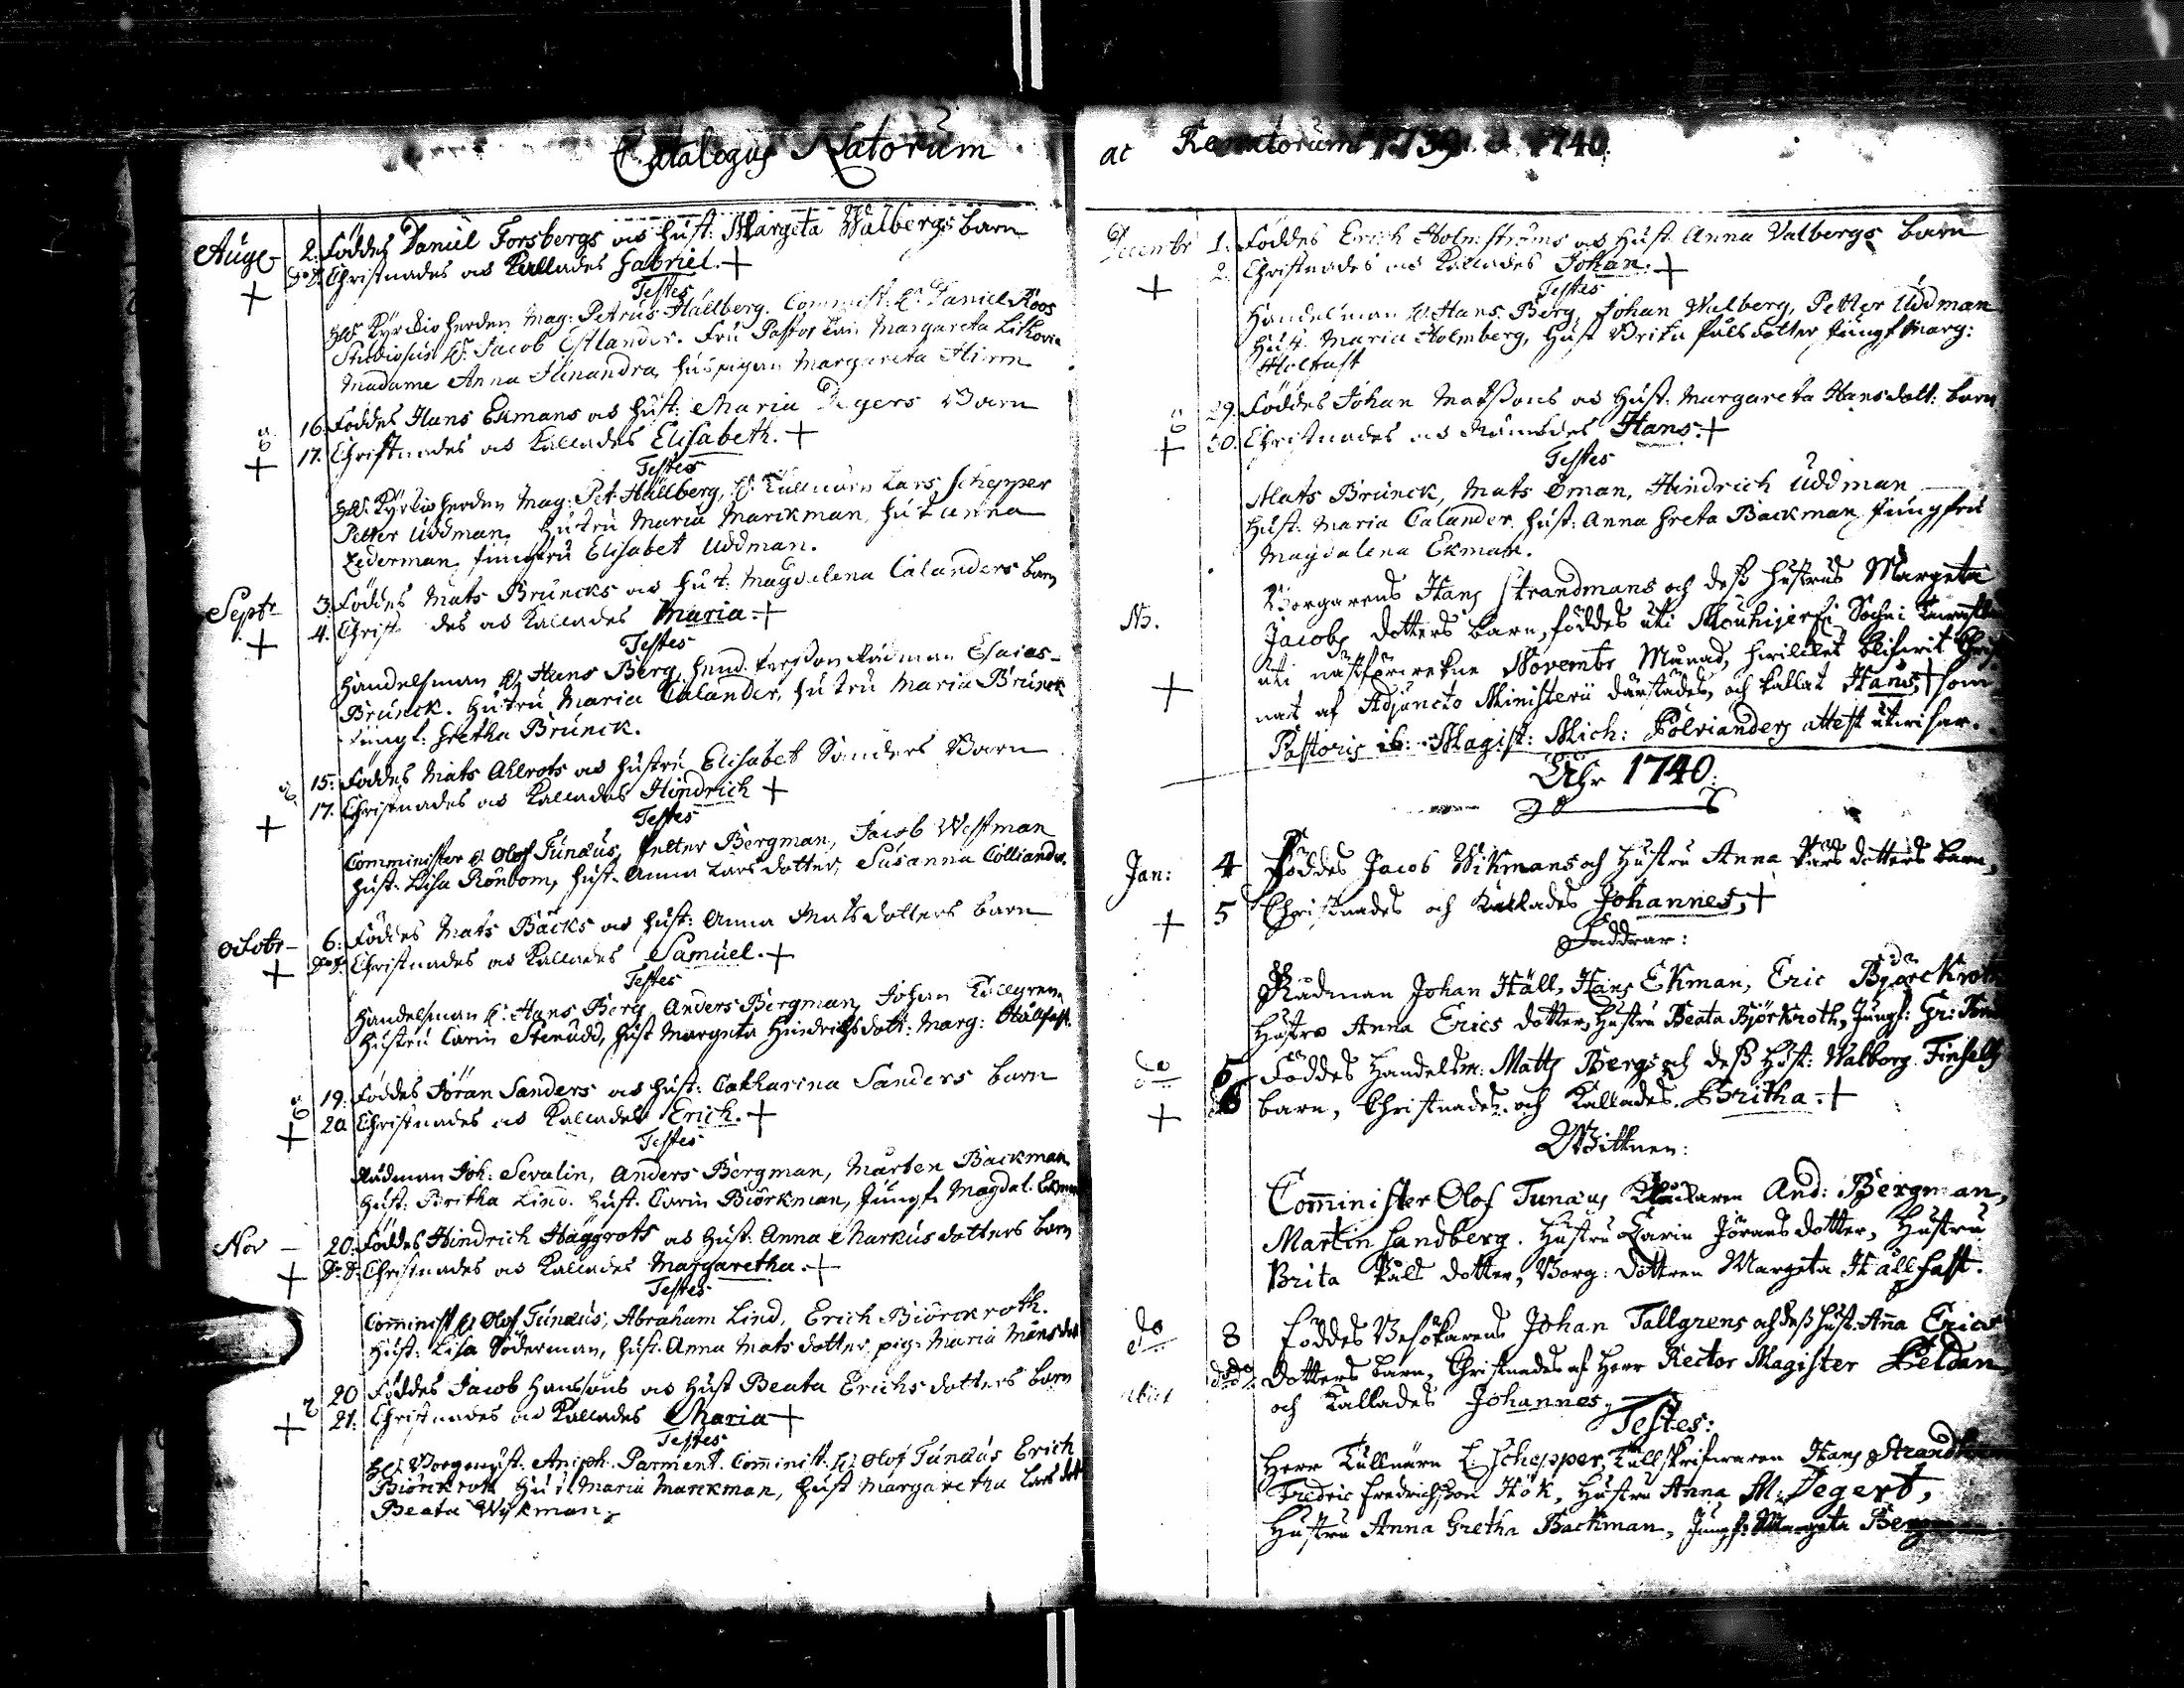 Catalogus Natorum
Aug 2. Föddes Daniel Forsbergs och hust: Margeta Walbergs barn
Do D. Christnades och Kallades Gabriel. +
+
Testes
Kyrckioherden Mag: Petrus Hällberg. Commist: Hr Daniel Roos
Studiosus Hr Jacob Estlander. Fru Pastor Margareta Lithovia
Madame Anna huspigan Margareta
16. Föddes Hans Ekmans och hust: Maria Barn
+ 17. Christnades och Kallades Elisabeth. +
Testes
Kyrkioherden Mag: Pet Hällberg, Hr Tullnären Lars Schepper
Petter Uddman. Hustru Maria Marckman, hust Anna
Zederman, Jungfru Elisabet Uddman.
Septr 3. Föddes Mats Bruncks och hust: Magdalena Calanders barn
+ 4. Christ des och Kallades Maria. +
Testes
Handelsman Hr Hans Berg, Rådman Esaias
Brunck. Hustru Maria Calander, hustru Maria Brunck
Jungf: Gretha Brunck.
15. Föddes Mats Ahlrots och hustru Elisabet Sanders Barn
+ 17. Christnades och Kallades Hindrich +
Testes
Comminister Hr Olof Tunæus, Petter Bergman, Jacob Westman
hust. Lisa Rönbom, hust. Anna Larsdotter, Susanna Colliander.
Octobr 6. Föddes Mats Bäcks och hust: Anna Matsdotters barn
+ Do D. Christnades och Kallades Samuel. +
Testes
Handelsman Hr Hans Berg Anders Bergman, Johan Tallgren.
hustru Carin Stenudd, hust Margeta Hindrichsdott: Marg: Hällfast.
19. Föddes Jöran Sanders och hust: Catharina Sanders barn
+ 20 Christnades och Kallades Erich. +
Testes
Rådman Joh: Sevalin, Anders Bergman, Mårten Backman
Hust: Britha Lind. hust. Carin Biörkman, Jungf. Magdal. Ekman
Nov 20. Föddes Hindrich Häggrots och Hust: Anna Markusdotters barn
+ Do D. Christnades och Kallades Margaretha. +
Testes
Commist Hr Olof Tunæus, Abraham Lind, Erich Biörckroth.
Hust: Lisa Söderman, hust. Anna Matsdotter, pig: Maria
20 Föddes Jacob Hanssons och Hust Beata Erichsdotters barn
+ 21. Christnades och Kallades Maria +
Testes
Hr Borgmäst. Parment. Commist. Hr Olof Tunæus Erich
Biörckrot Hust Maria Marckman, hust Margaretha Larsdott
Beata Wykman
ac Renatorum 1739 1740.
Decembr 1. Föddes Erich Holmströms och Hust Anna Valbergs barn
+ 2. Christnades och Kallades Johan. +
Testes
Handelsman Hr Hans Berg, Johan Walberg, Petter Uddman
Hust. Maria Holmberg, Hust Brita Pålsdotter Jungf Marg:
29. Föddes Johan Matssons och Hust. Margareta Hansdott: barn
+ 30. Christnades och Nämdes Hans. +
Testes
Mats Brunck, Mats Öman, Hindrich Uddman
Hust: Maria Calander. hust: Anna Greta Backman Jungfru
Magdalena Ekman.
Nb. Borgarens Hans Strandmans och dess hustrus Margeta
Jacobs dotters barn, föddes uti Mouhijerfi Sochn i
uti nästförewekne Novembr Månad, hwilcket blifwit Christ
+ nat af Adjuncto Ministerii därstädes, och kallat Hans, + som
Pastoris ib: Magist: Mich: Polvianders attest utwisar.
Åhr 1740.
Jan: 4 Föddes Jacob Wikmans och Hustru Anna Lars dotters barn,
+ 5 Christnades och Kallades Johannes, +
Faddrar:
Rådman Johan Häll, Hans Ekman, Eric Björckroth
Hustru Anna Erics dotter, Hustru Beata Björkroth, Jungf: Gr:
do 5 Föddes Handelsm: Matts Bergs och dess Hust: Walborg
+ 6 barn, Christnades och Kallades Britha. +
Wittnen:
Comminister Olof Tunæus Klåckaren And: Bergman,
Martin Sandberg. Hustru Carin Jörans dotter, Hustru
Brita Påls dotter, Borg: dottren Margeta Hällfast.
do 8 Föddes Besökarens Johan Tallgrens och dess hust: Anna Erics
dotters barn, Christnades af Herr Rector Magister Peldan
och Kallades Johannes,
Testes:
Herr Tullnären L: Schepper, Tullskrifwaren Hans
Fredric Fredrichsson Hök, Hustru Anna M: Degert,
Hustru Anna Gretha Backman, Jungf: Margeta Bergman